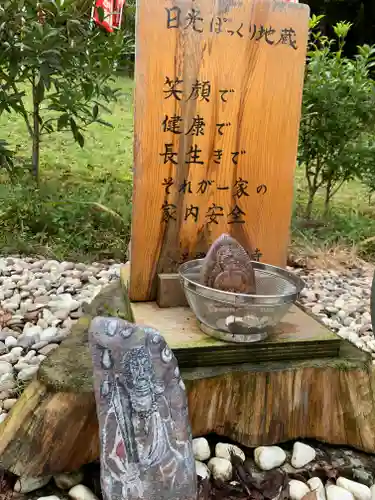 日光ぽっくり地蔵
笑顔で
健康で
長生きで
それが一家の
家内安全
寺